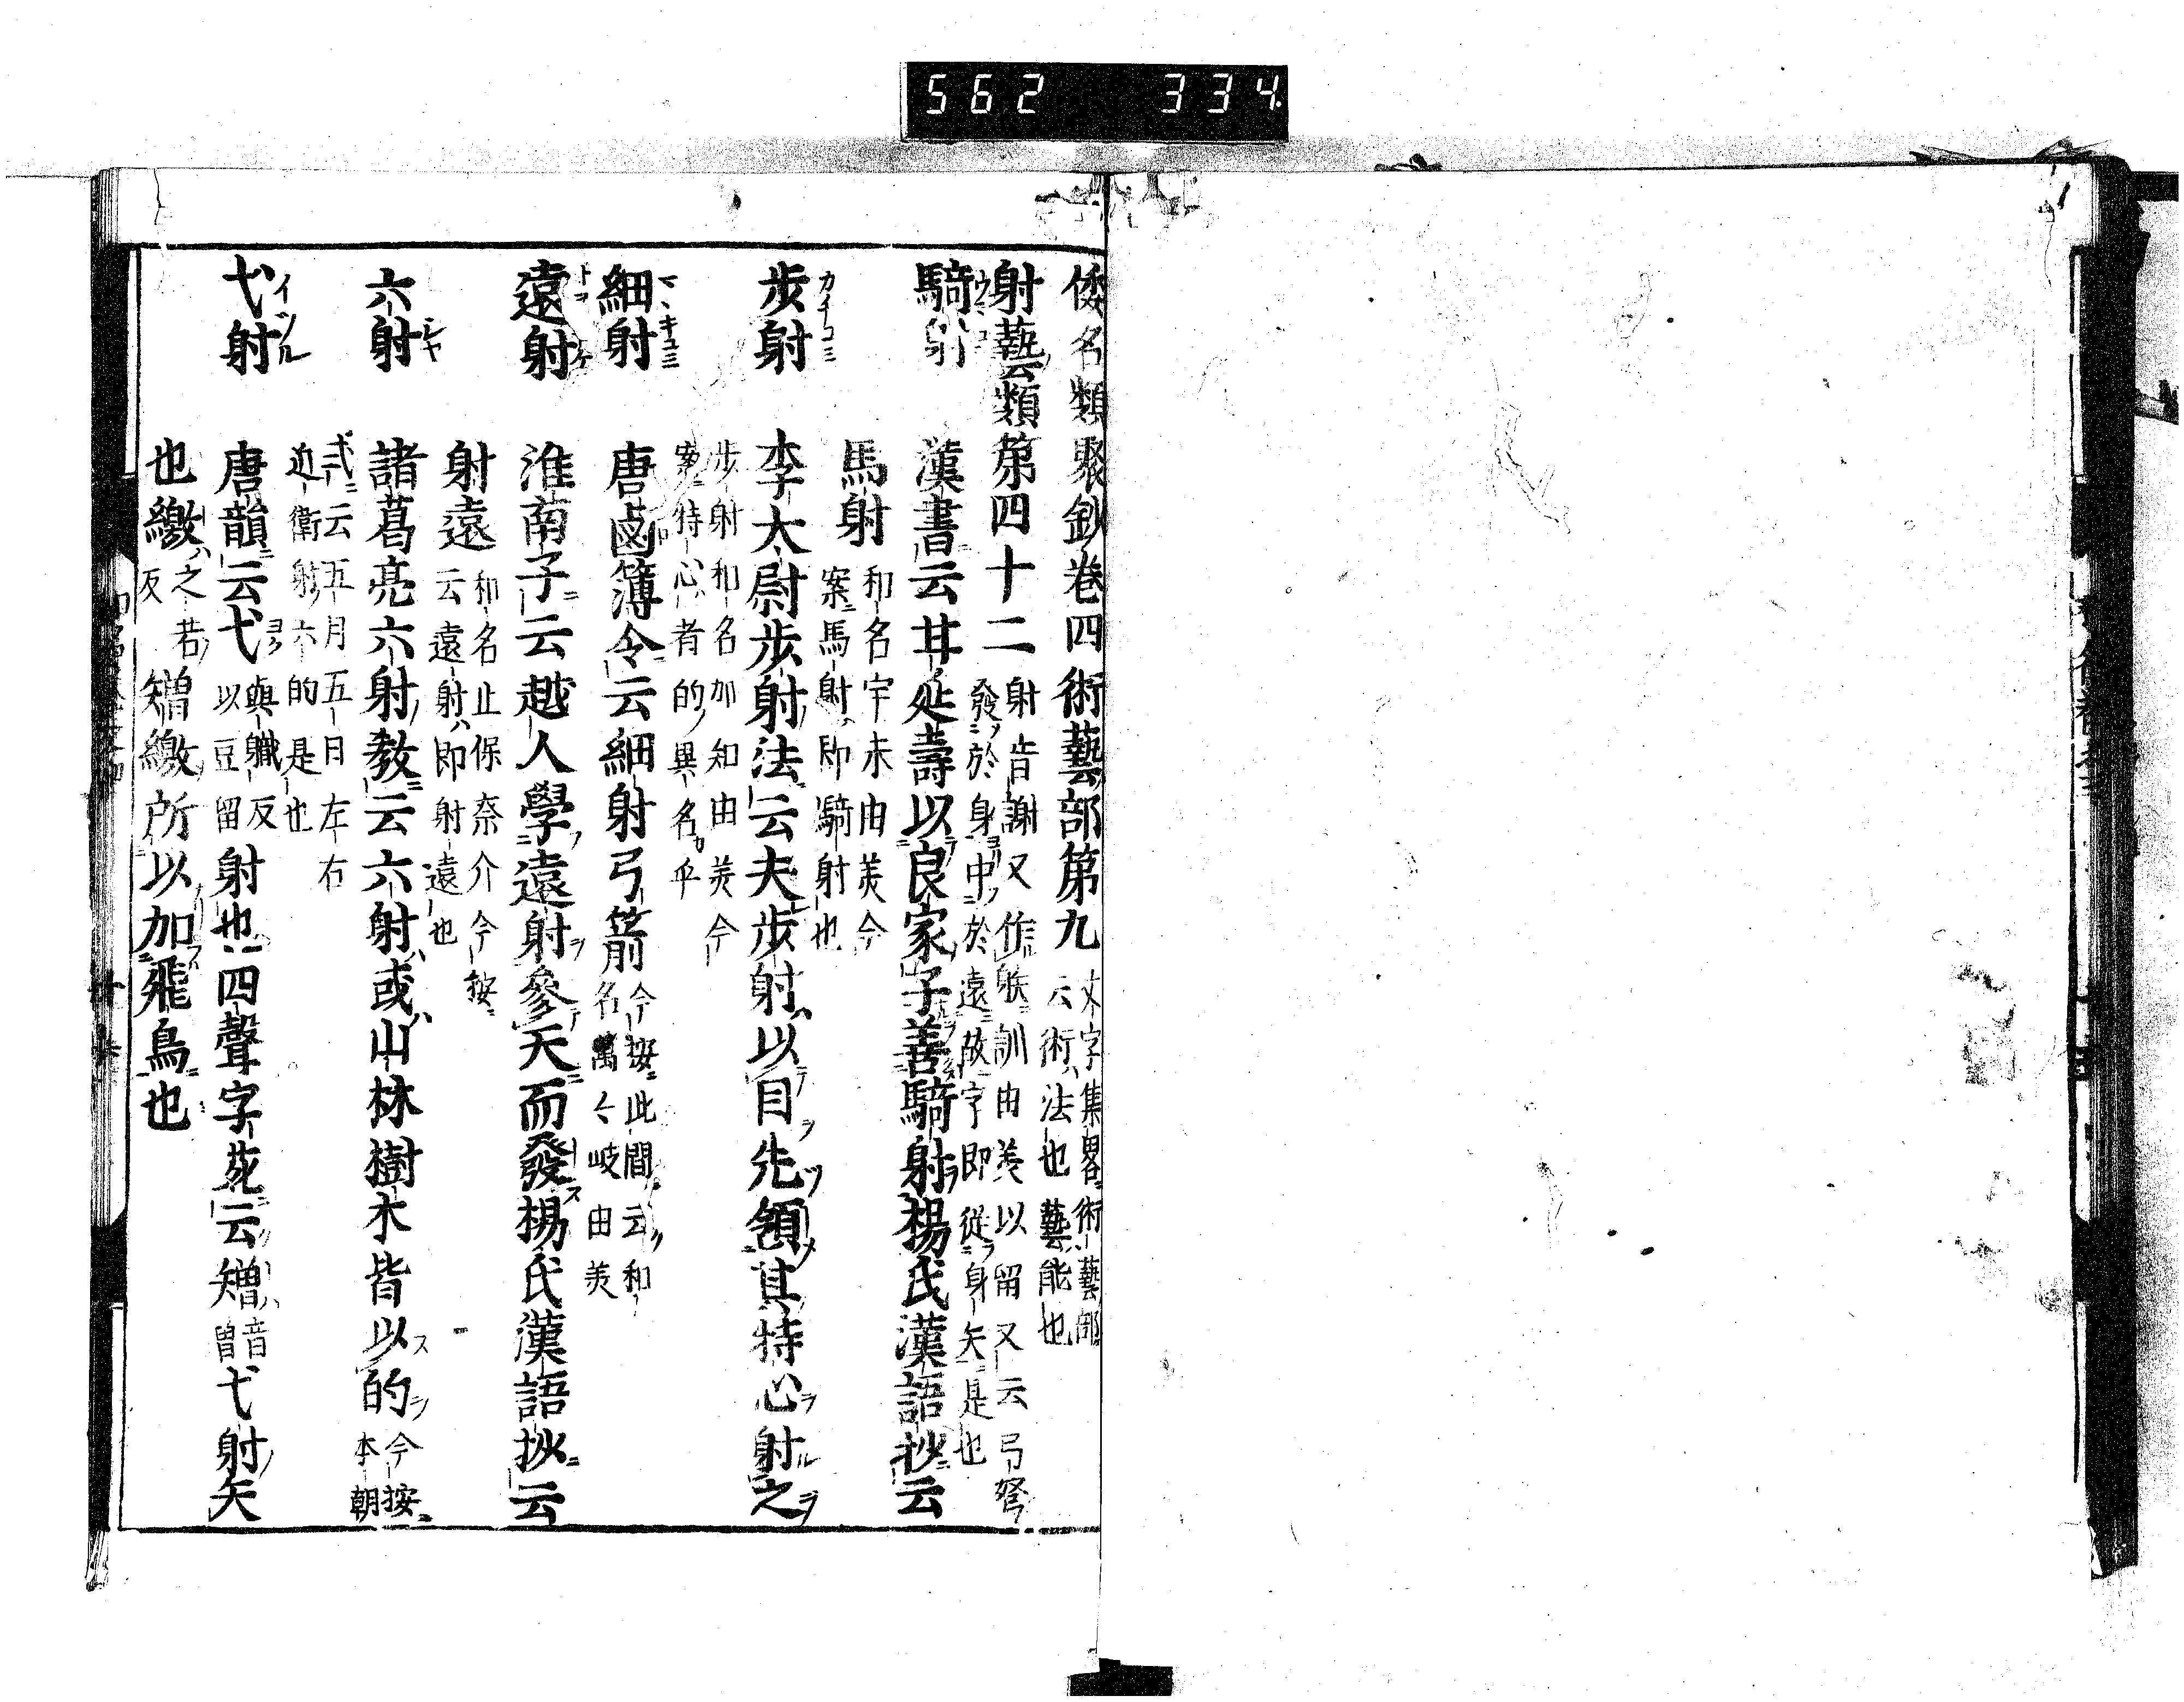 562 334
倭名類聚鈔卷四術藝部第九 文字集畧云術法也藝能也 術藝部
射藝類第四十二 射音謝又作䠶訓由美以留又云弓弩發於身中於遠故字即從身矢是也
騎射 漢書云甘延壽以良家子善騎射楊氏漢語抄云
馬射 和名宇末由美今案馬射即騎射也
步射 李太尉步射法云夫步射以目先領其特心射之
步射和名加知由美今案特心者的異名乎
細射 唐鹵簿令云細射弓箭 今按此間云和名萬々岐由美
遠射 淮南子云越人學遠射參天而發楊氏漢語抄云
射遠 和名止保奈介今按云遠射即射遠也
六射 諸葛亮六射教云六射或山林樹木皆以的 今按本朝
式云五月五日左右近衛射六的是也
弋射 唐韻云弋 與職反以豆留 射也四聲字苑云矰 音曾 弋射矢
也繳 之若反 矰繳所以加飛鳥也